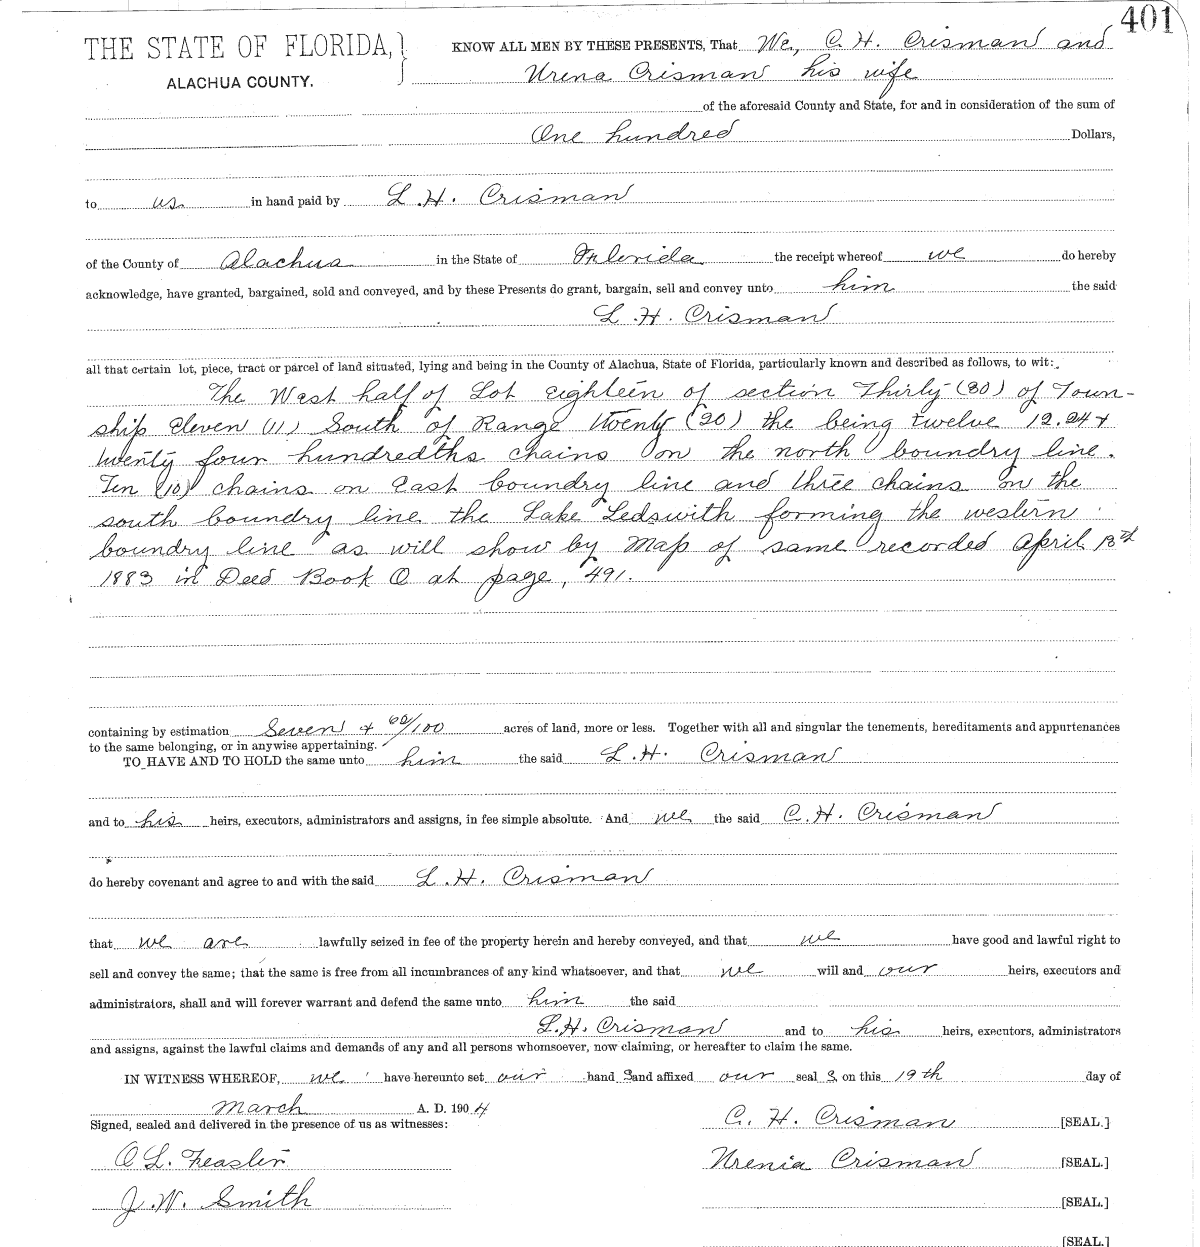 401
THE STATE OF FLORIDA,
ALACHUA COUNTY.
KNOW ALL MEN BY THESE PRESENTS, That We, C. H. Crisman and
Urena Crisman his wife
of the aforesaid County and State, for and in consideration of the sum of
One hundred Dollars,
to us in hand paid by L. H. Crisman
of the County of Alachua in the State of Florida the receipt whereof we do hereby
acknowledge, have granted, bargained, sold and conveyed, and by these Presents do grant, bargain, sell and convey unto him the said
L. H. Crisman
all that certain lot, piece, tract or parcel of land situated, lying and being in the County of Alachua, State of Florida, particularly known and described as follows, to wit:
The West half of Lot eighteen of section Thirty (30) of Town-
ship Eleven (11) South of Range twenty (20) the being twelve 12.24 +
twenty four hundredths chains on the north boundry line.
Ten (10) chains on East boundry line and three chains on the
south boundry line the Lake Ledswith forming the western
boundry line as will show by Map of same recorded April
1883 in Deed Book O at page, 491.
containing by estimation Seven + 62/100 acres of land, more or less. Together with all and singular the tenements, hereditaments and appurtenances
to the same belonging, or in anywise appertaining.
TO HAVE AND TO HOLD the same unto him the said L. H. Crisman
and to his heirs, executors, administrators and assigns, in fee simple absolute. And we the said C. H. Crisman
do hereby covenant and agree to and with the said L. H. Crisman
that we are lawfully seized in fee of the property herein and hereby conveyed, and that we have good and lawful right to
sell and convey the same; that the same is free from all incumbrances of any kind whatsoever, and that we will and our heirs, executors and
administrators, shall and will forever warrant and defend the same unto him the said
L. H. Crisman and to his heirs, executors, administrators
and assigns, against the lawful claims and demands of any and all persons whomsoever, now claiming, or hereafter to claim the same.
IN WITNESS WHEREOF, we have hereunto set our hand s and affixed our seal s on this 19th day of
March A. D. 1904
Signed, sealed and delivered in the presence of us as witnesses:
C. H. Crisman [SEAL.]
O L. Feaster
Urenia Crisman [SEAL.]
J. W. Smith
[SEAL.]
[SEAL.]